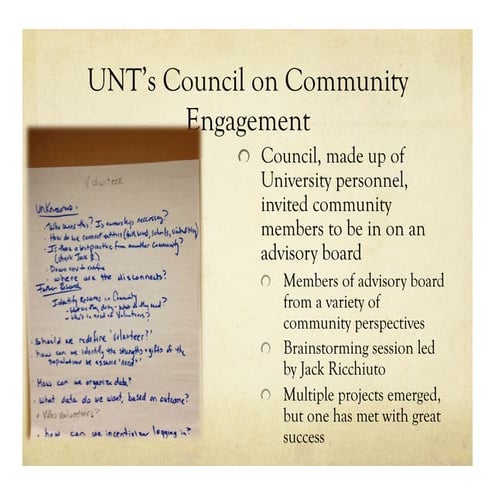 UNT's Council on Community
Engagement
Council, made up of
University personnel,
invited community
members to be in on an
advisory board
Members of advisory board
from a variety of
community perspectives
Brainstorming session led
by Jack Ricchiuto
Multiple projects emerged,
but one has met with great
success
Volunteer
Unknowns:
- Who owns this? Is ownership necessary?
- How do we connect entities (faith based, schools, United Way)
- Is there a best practice from another community?
(check Jack R.)
- Do we need to
- where are the disconnects?
Further Research
Identify Resources in Community
- who in need of Volunteers?
- Should we redefine 'volunteer?'
- how can we identify the strengths + gifts of the
populations we assume 'need'
- How can we organize data?
- What data do we want, based on outcome?
- Who volunteers?
- how can we incentivize logging in?